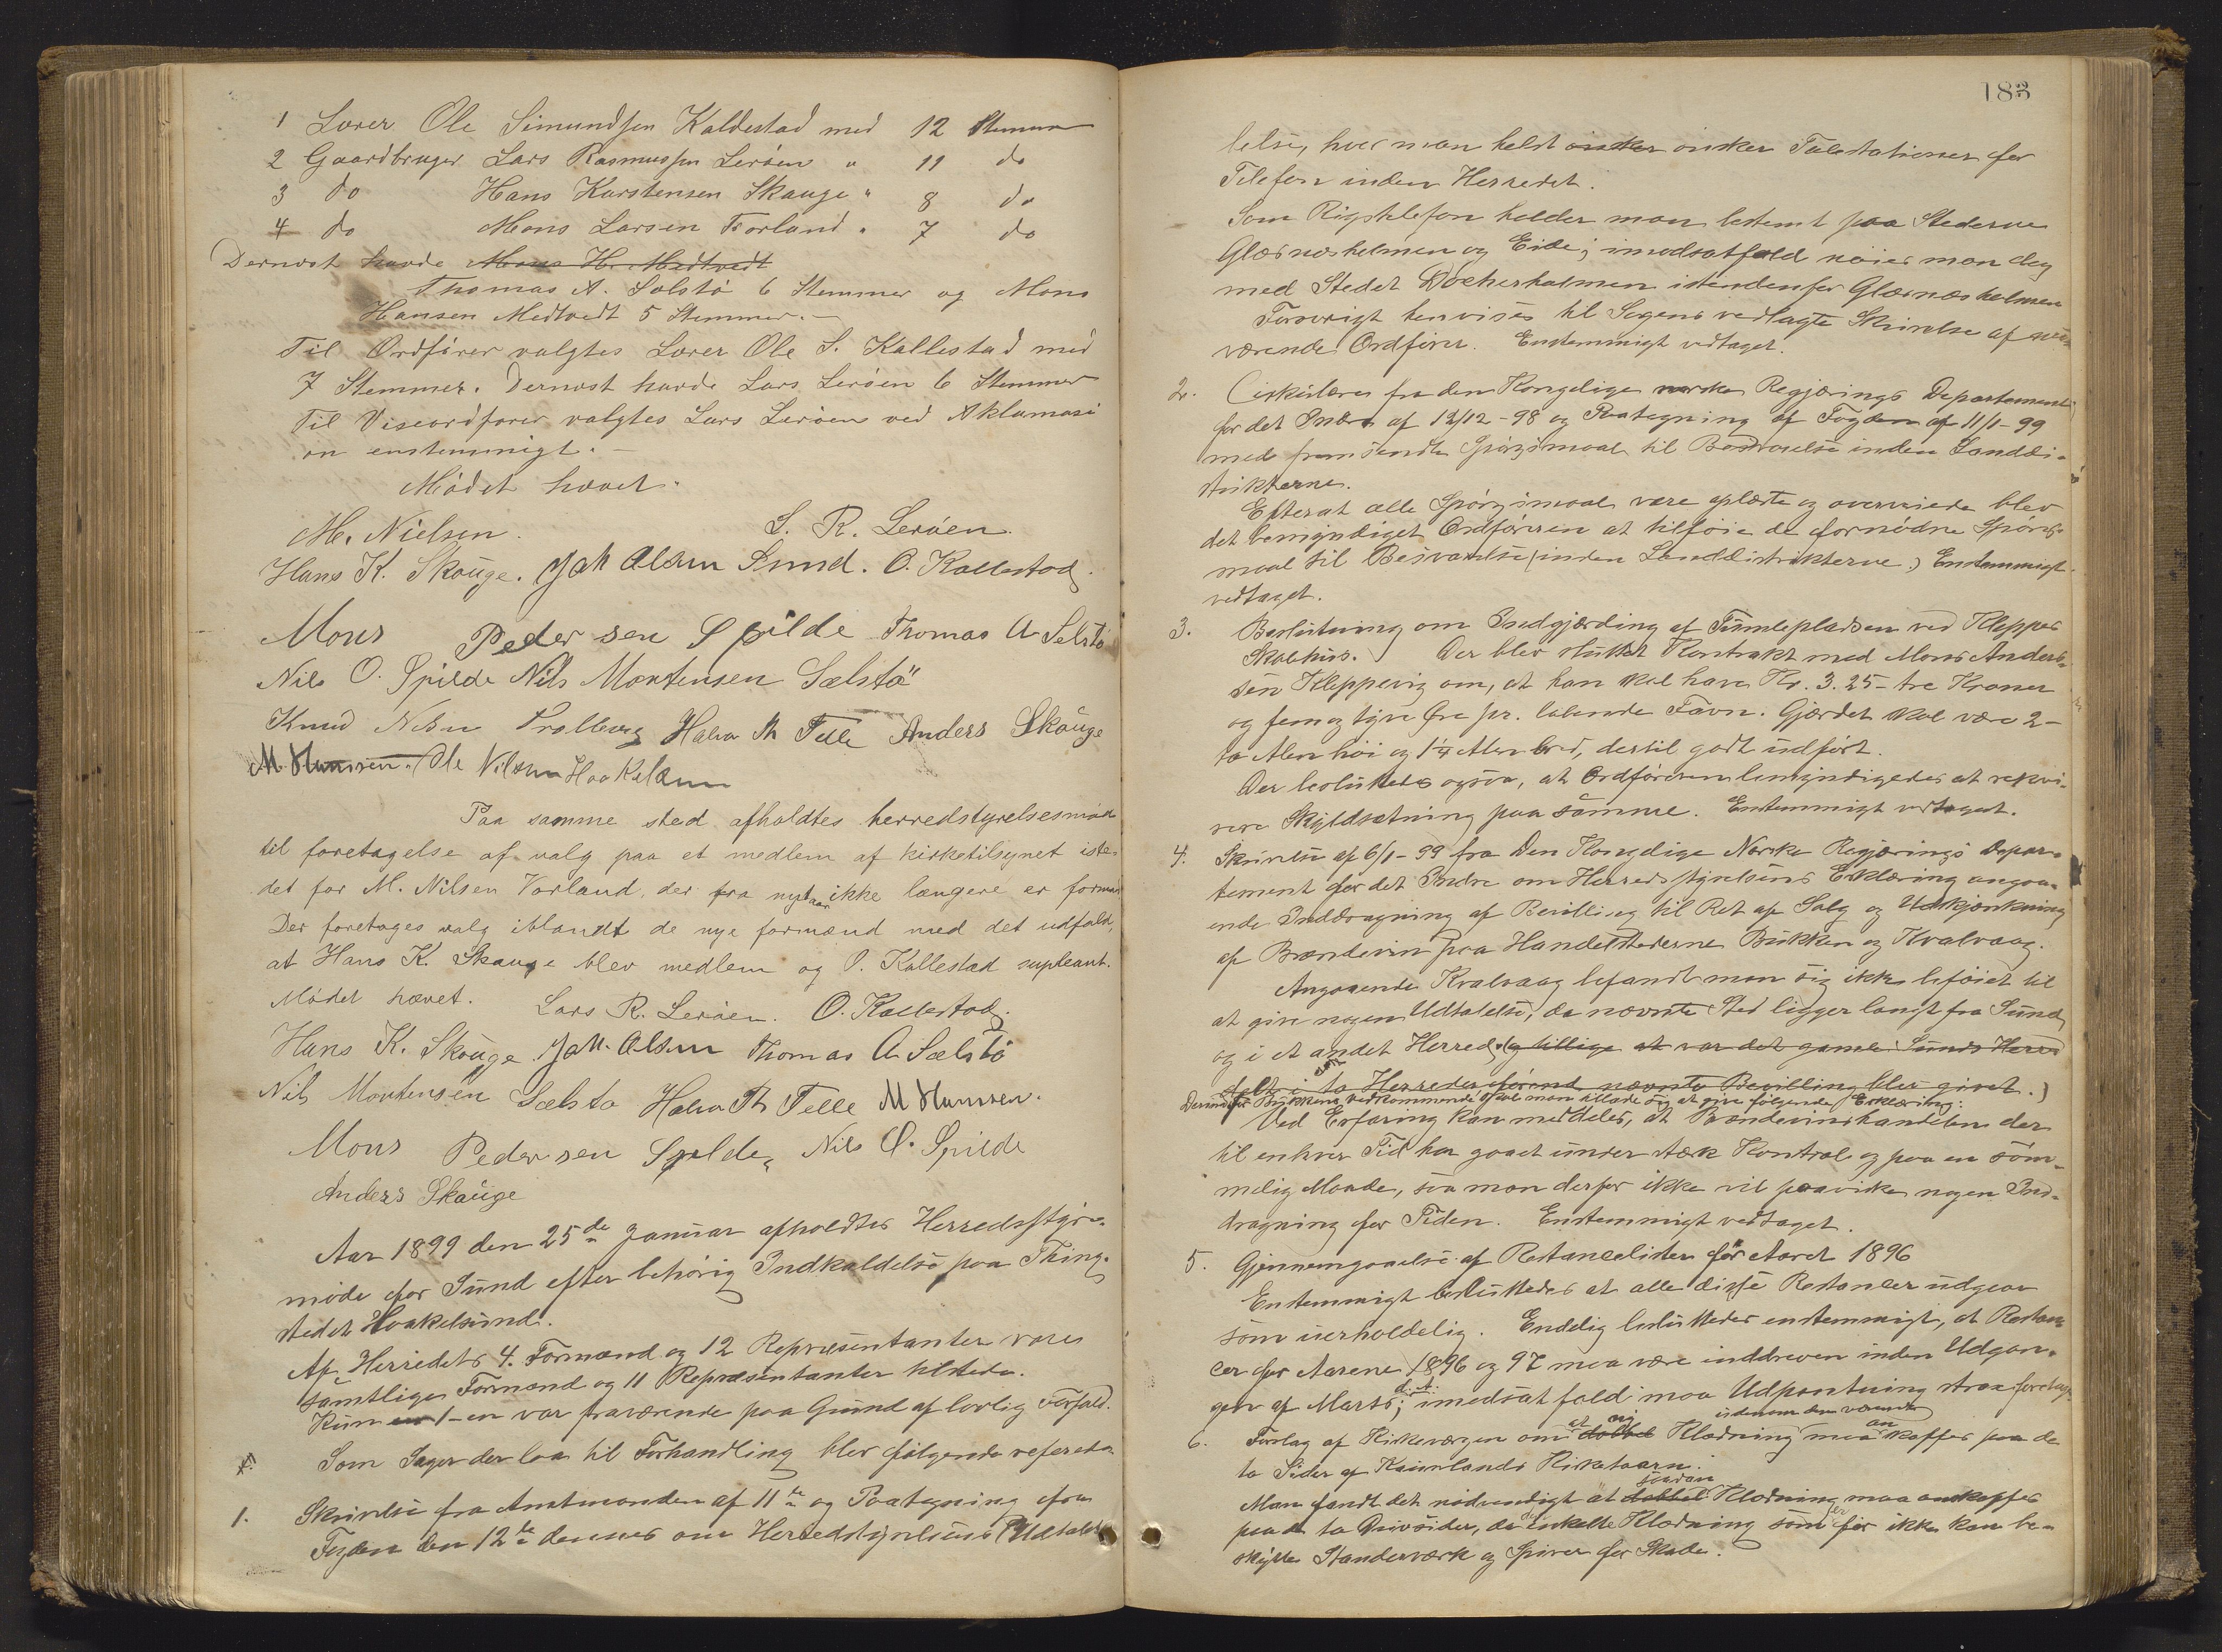 1 Lærer Ole Simundsen Kaldestad med 12 Stemmer
2 Gaardbruger Lars Rasmussen Leröen " 11 do
3 do Hans Karstensen Skauge " 8 do
4 do Mons Larsen Forland " 7 do
Dernæst havde Mons H. Medtvedt
Thomas A. Sælstö 6 Stemmer og Mons
Hansen Medtvedt 5 Stemmer. —
Til Ordförer valgtes Lærer Ole S. Kallestad med
7 Stemmer. Dernæst havde Lars Leröen 6 Stemmer
Til Viseordförer valgtes Lars Leröen ved Aklamasi
on enstemmigt. —
Mödet hævet.
M. Nielsen. L. R. Leröen.
Hans K. Skauge. Jak Olsen Sund. O. Kallestad.
Mons Pedersen Spilde Thomas A Selstö
Nils O. Spilde Nils Mortensen Sælstö
Knud Nilsen Trolleg Halvor Th Telle Anders Skauge
M. Hanssen. Ole Nilsen Haakelsun
Paa samme sted afholdtes herredstyrelsesmöde
til foretagelse af valg paa et medlem af kirketilsynet iste-
det for M. Nilsen Vorland, der fra nytaar ikke længere er formand
Der foretages valg iblandt de nye formænd med det udfald,
at Hans K. Skauge blev medlem og O. Kallestad supleant.
Mödet hævet. Lars R. Leröen. O. Kallestad.
Hans K. Skauge Jak. Olsen Thomas A Sælstö
Nils Mortensen Sælstö Halvor Th Telle M Hanssen.
Mons Pedersen Spilde, Nils O. Spilde
Anders Skauge
Aar 1899 den 25de Januar afholdtes Herredsstyre-
möde for Sund efter behörig Indkaldelse paa Thing-
stedet Haakelsund.
Af Herredets 4. Formænd og 12 Repræsentanter vare
samtlige Formænd og 11 Repræsentanter tilstede.
Kun en 1 - en var fraværende paa Grund af lovlig Forfald.
Som Sager der laa til Forhandling blev fölgende refereret
1. Skrivelse fra Amtmanden af 11te og Paategning fra
Fogden den 12te dennes om Herredstyrelsens Udtalel-
183
lelse, hvor man helst önsker önsker Talestationer for
Telefon inden Herredet.
Som Rigstelefon holder man bestemt paa Stederne
Glæsnæsholmen og Eide; imodsatfald nöier man deg
med Stedet Dökherholmen istedenfor Glæsnæsholmen
Forövrigt henvises til Sagens vedlagte Skrivelse af
værende Ordförer. Enstemmigt vedtaget.
2. Cirkulære fra den Kongelige norske Regjerings Departement
for det Indre af 12/12 - 98 og Paategning af Fogden af 11/1 - 99
med fremsendte Spörgsmaal til Besvarelse inden Landdi-
strikterne.
Efterat alle Spörgsmaal vare oplæste og overveiede blev
det bemyndiget Ordföreren at tilföie de fornödne Spörgs-
maal til Besvarelse (inden Landdistrikterne.) Enstemmigt
vedtaget.
3. Beslutning om Indgjærding af Tumlepladsen ved Kleppes
Skolehus. Der blev sluttet Kontrakt med Mons Anders-
sen Kleppevig om, at han skal have Kr. 3.25 - tre Kroner
og fem og tyve Öre pr. löbende Favn. Gjærdet skal være 2 -
to Alen höi og 1¼ Alen bred, dertil godt udfört.
Der besluttedes ogsaa, at Ordföreren bemyndigedes at rekvi-
rere Skyldsætning paa samme. Enstemmigt vedtaget.
4. Skrivelse af 6/1 - 99 fra Den Kongelige Norske Regjerings Depar-
tement for det Indre om Herredsstyrelsens Erklæring angaa-
ende Inddragning af Bevilling til Ret af Salg og Udskjænkning
af Brændevin paa Handelsstederne Bukken og Kvalvaag.
Angaaende Kvalvaag befandt man sig ikke beföiet til
at give nogen Udtalelse, da nævnte Sted ligger langt fra Sund
og i et andet Herred. (og tillige at var det gamle Sunds Herred
delt i to Herreder förend nævnte Bevilling blev givet.)
Derimod Bukkens vedkommende skal man tillade sig at give fölgende Erklæring:
Ved Erfaring kan meddeles, at Brændevinshandelen der
til enhver Tid har gaaet under stæk Kontrol og paa en söm-
melig Maade, saa man derfor ikke vil paavirke nogen Ind-
dragning for Tiden. Enstemmigt vedtaget.
5. Gjennemgaaelse af Restancelisten for Aaret 1896
Enstemmigt besluttedes at alle disse Restancer udgaar
som uerholdelig. Endelig besluttedes enstemmigt, at Restan-
cer for Aarene 1896 og 97 maa være inddreven inden Udgan-
gen af Marts d. A.; imodsat fald maa Udpantning strax foretages
6. Forslag af Kirkeværgen om at ny dobbel Klædning udenom den værende maa anskaffes paa de
to Sider af Kausland's Kirketaarn.
Man fandt det nödvendigt at saadan dobbel Klædning maa anskaffes
paa de to Drivsider, da den enkelte Klædning som er för ikke kan be-
skytte Standerværk og Spirer for Skade.